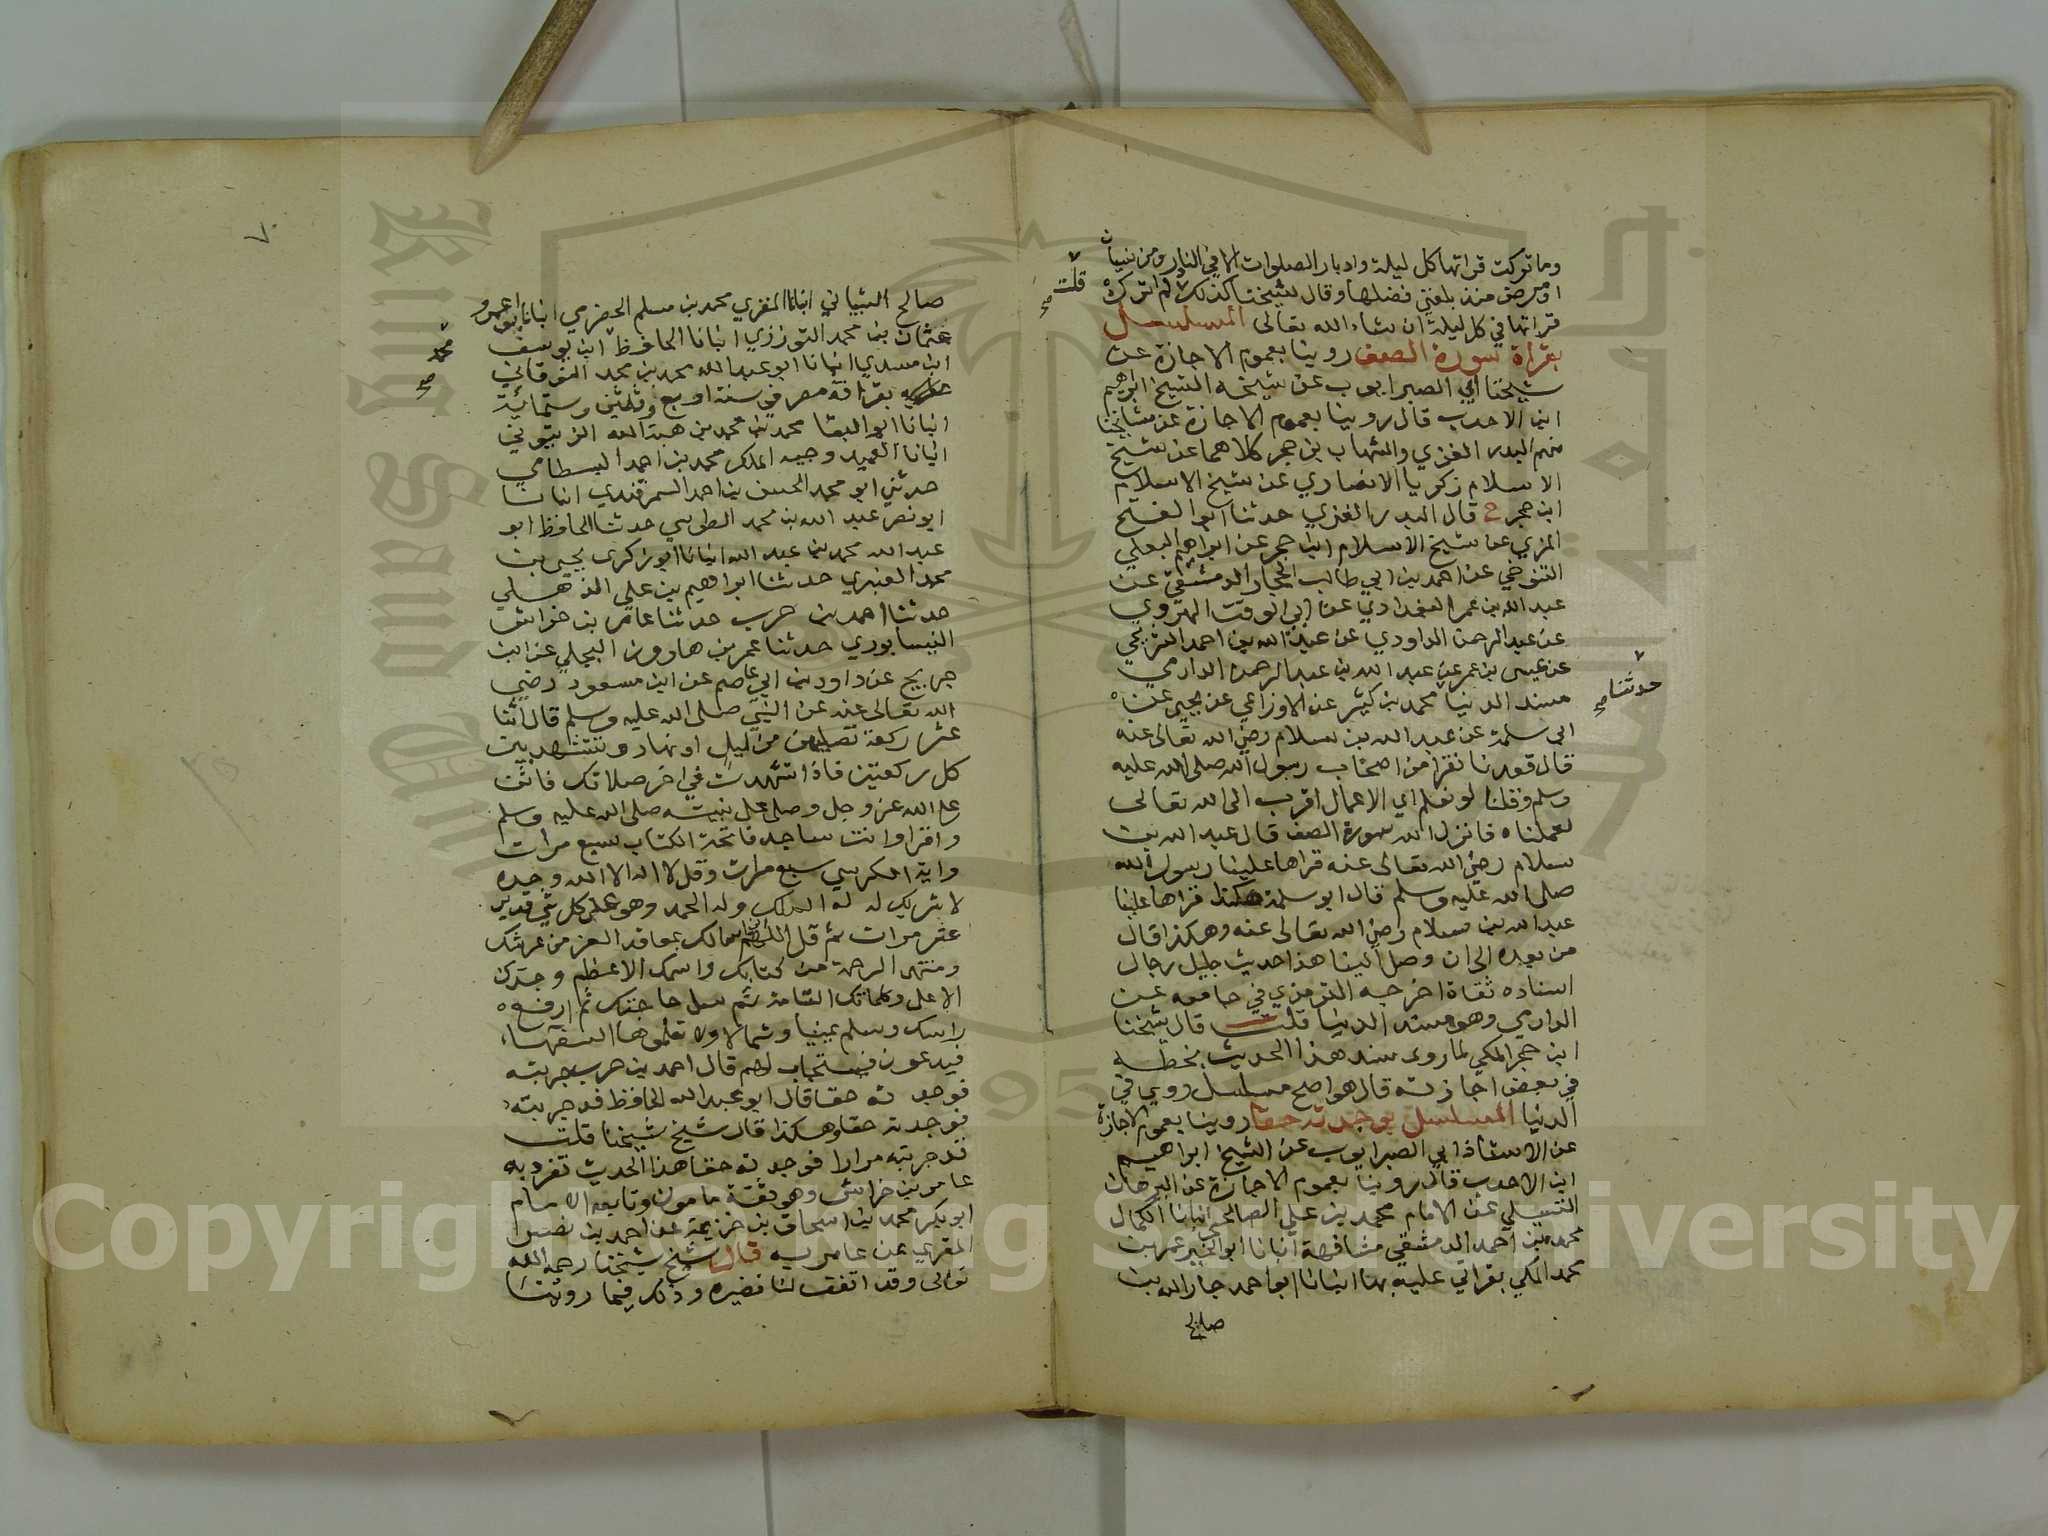 وما تركت قراتها كل ليلة وادبار الصلوات الا في النادر ومن نسيان
او مرض منذ بلغني فضلها وقال شيخنا كذلك قلت ولم اترك
قراتها في كل ليلة ان شاء الله تعالى المسلسل
بقراة سورة الصف روينا بعموم الاجازة عن
شيخنا ابي الصبر ايوب عن شيخه الشيخ ابراهيم
ابن الاحدب قال روينا بعموم الاجازة عن مشايخنا
منهم البدر الغزي والشهاب بن حجر كلاهما عن شيخ
الاسلام زكريا الانصاري عن شيخ الاسلام
ابن حجر ح قال البدر الغزي حدثنا ابو الفتح
المزي عن شيخ الاسلام ابن حجر عن ابراهيم البعلي
التنوخي عن احمد بن ابي طالب الحجار الدمشقي عن
عبد الله بن عمر البغدادي عن ابي الوقت الهروي
عن عبد الرحمن الداودي عن عبد الله بن احمد السرخسي
عن عيسى بن عمر عن عبد الله بن عبد الرحمن الدارمي
مسند الدنيا حدثنا محمد بن كثير عن الاوزاعي عن يحيى عن
ابي سلمة عن عبد الله بن سلام رضي الله تعالى عنه
قال قعدنا نفرا من اصحاب رسول الله صلى الله عليه
وسلم فقلنا لو نعلم اي الاعمال اقرب الى الله تعالى
لعملناه فانزل الله سورة الصف قال عبد الله بن
سلام رضي الله تعالى عنه قراها علينا رسول الله
صلى الله عليه وسلم قال ابو سلمة هكذا قراها علينا
عبد الله بن سلام رضي الله تعالى عنه وهكذا قال
من بعده الى ان وصل الينا هذا حديث جليل رجال
اسناده ثقاة اخرجه الترمذي في جامعه عن
الدارمي وهو مسند الدنيا قلت قال شيخنا
ابن حجر المكي لما روى سند هذا الحديث بخطه
في بعض اجازته قال هو اصح مسلسل روي في
الدنيا المسلسل بوجدته حقا روينا بعموم الاجازة
عن الاستاذ ابي الصبر ايوب عن الشيخ ابراهيم
ابن الاحدب قال روينا بعموم الاجازة عن البرهان
عن الامام محمد بن علي الصالحي انبانا الكمال
محمد بن احمد الدمشقي مشافهة انبانا ابو الخير عمر بن
محمد المكي بقراتي عليه بها انبانا ابو احمد جار الله بن
صالح
قلت
صح
حدثنا صح
٧
صالح الشيباني انبانا المقري محمد بن مسلم الحضرمي انبانا ابو عمرو
عثمان بن محمد التوزري انبانا الحافظ ابن يوسف
ابن مسدي انبانا ابو عبد الله محمد بن محمد
بقرافة مصر في سنة اربع وثلثين وستمائية
انبانا ابو البقا محمد بن محمد بن هبة الله الزيتوني
انبانا العميد وجيه الملك محمد بن احمد البسطامي
حدثني ابو محمد الحسن بن احمد السمرقندي انبانا
ابو نصر عبد الله بن محمد الطوسي حدثنا الحافظ ابو
عبد الله محمد بن عبد الله انبانا ابو زكرى يحيى بن
محمد العنبري حدثنا ابراهيم بن علي الذهلي
حدثنا احمد بن حرب حدثنا عامر بن خراش
النيسابوري حدثنا عمر بن هاورن البجلي عن ابن
جريج عن داود بن ابي عاصم عن ابن مسعود رضي
الله تعالى عنه عن النبي صلى الله عليه وسلم قال اثنتا
عشر ركعة تصليهن من ليل او نهار وتتشهد بين
كل ركعتين فاذا تشهدت في اخر صلاتك فاثن
على الله عز وجل وصلى على نبيه صلى الله عليه وسلم
واقرا وانت ساجد فاتحة الكتاب سبع مرات
واية الكرسي سبع مرات وقل لا اله الا الله وحده
لا شريك له له الملك وله الحمد وهو على كل شي قدير
عشر مرات ثم قل اللهم اني اسالك بمعاقد العز من عرشك
ومنتهى الرحمة من كتابك واسمك الاعظم وجدك
الاعلى وكلماتك التامة ثم سل حاجتك ثم ارفع
راسك وسلم يمينا وشمالا ولا تعلموها السفهاء
فيدعون فيستجاب لهم قال احمد بن حرب جربته
فوجدته حقا قال ابو عبد الله الحافظ قد جربته
فوجدته حقا وهكذا قال شيخ شيخنا قلت
قد جربته مرارا فوجدته حقا هذا الحديث تفرد به
عامر بن خراش وهو ثقة مامون وتابعه الامام
ابو بكر محمد بن اسحاق بن خزيمة عن احمد بن نصر
المقري عن عامر به قال شيخ شيخنا رحمه الله
تعالى وقد اتفق لنا نضيره وذلك فيما روينا
محمد
صح
Copyright © King Saud University
جامعة الملك سعود
King Saud University
1957